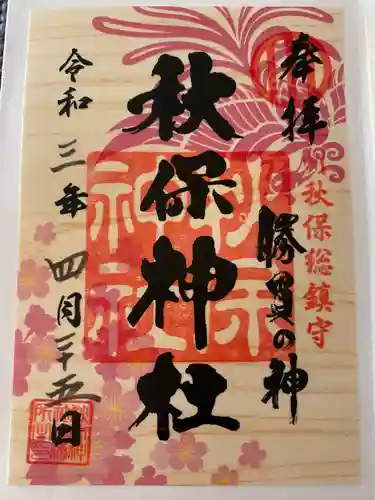 奉拝
秋保総鎮守
勝貫の神
秋保神社
令和三年四月二十五日
秋保神社